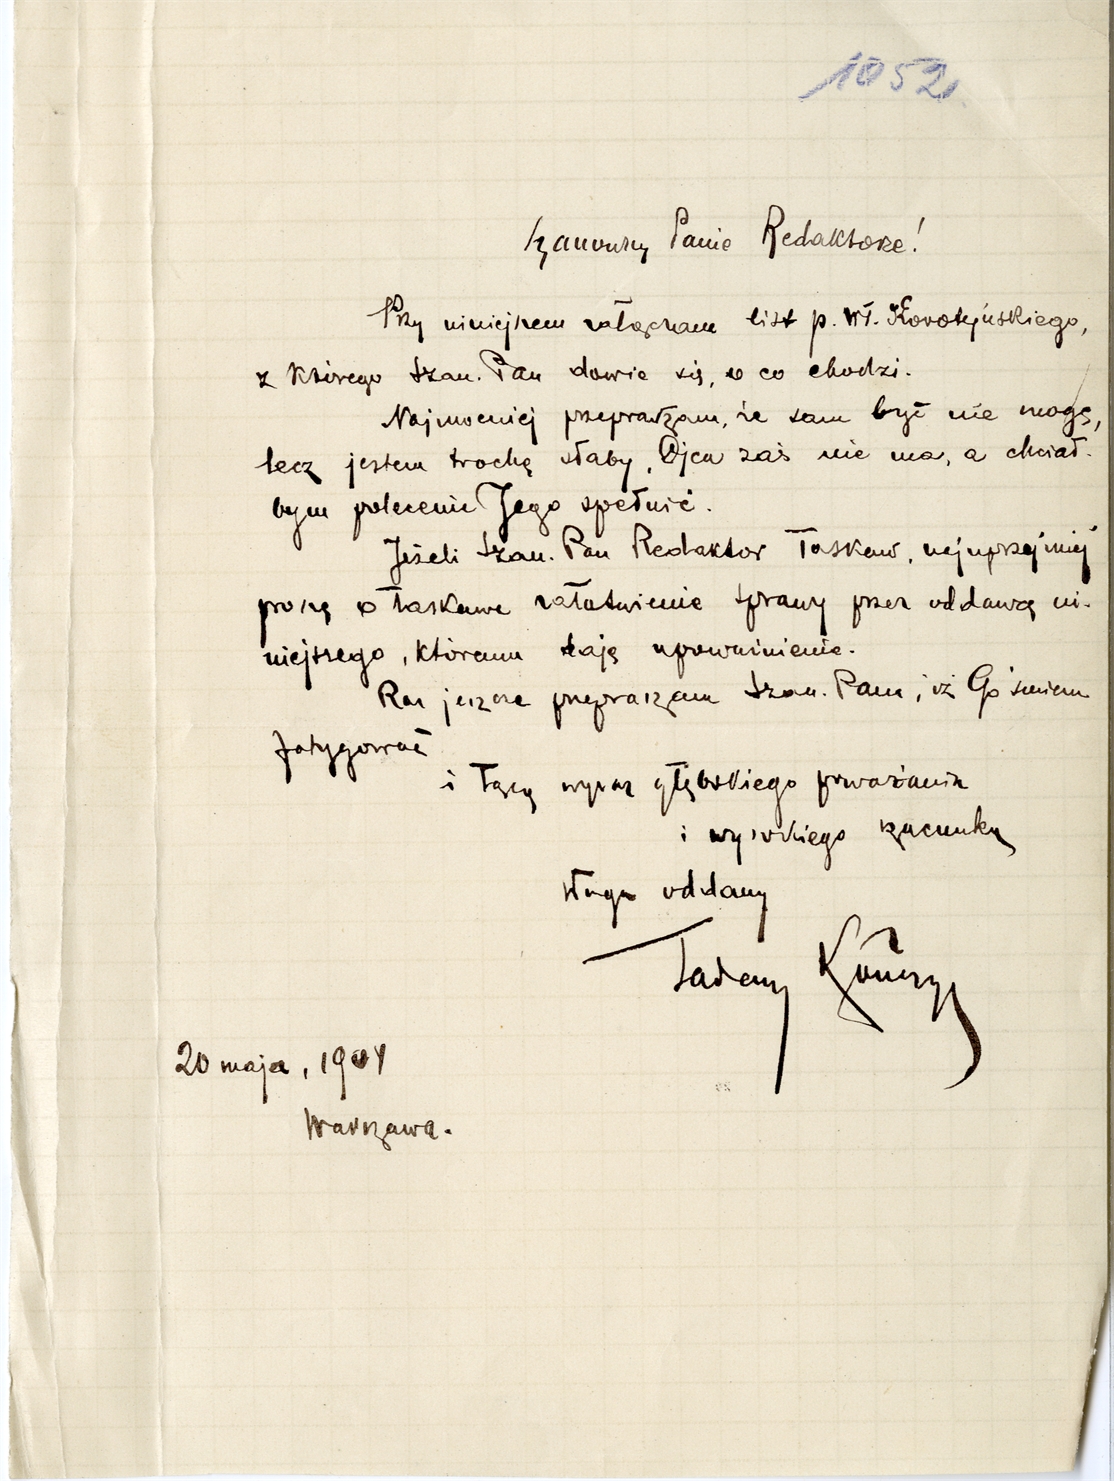 1052.
Szanowny Panie Redaktorze!
Przy niniejszem załączam list p. Wł. Korotyńskiego,
z którego Szan. Pan dowie się, o co chodzi.
Najmocniej przepraszam, że sam być nie mogę,
lecz jestem trochę słaby, Ojca zaś nie ma, a chciał-
bym polecenie Jego spełnić.
Jeżeli Szan. Pan Redaktor łaskaw, najuprzejmiej
proszę o łaskawe załatwienie sprawy przez oddawcę ni-
niejszego, któremu daję upoważnienie.
Raz jeszcze przepraszam Szan. Pana, iż Go śmiem
fatygować
i łączę wyraz głębokiego poważania
i wysokiego szacunku
sługa oddany
Tadeusz Kończyc
20 maja, 1904
Warszawa.